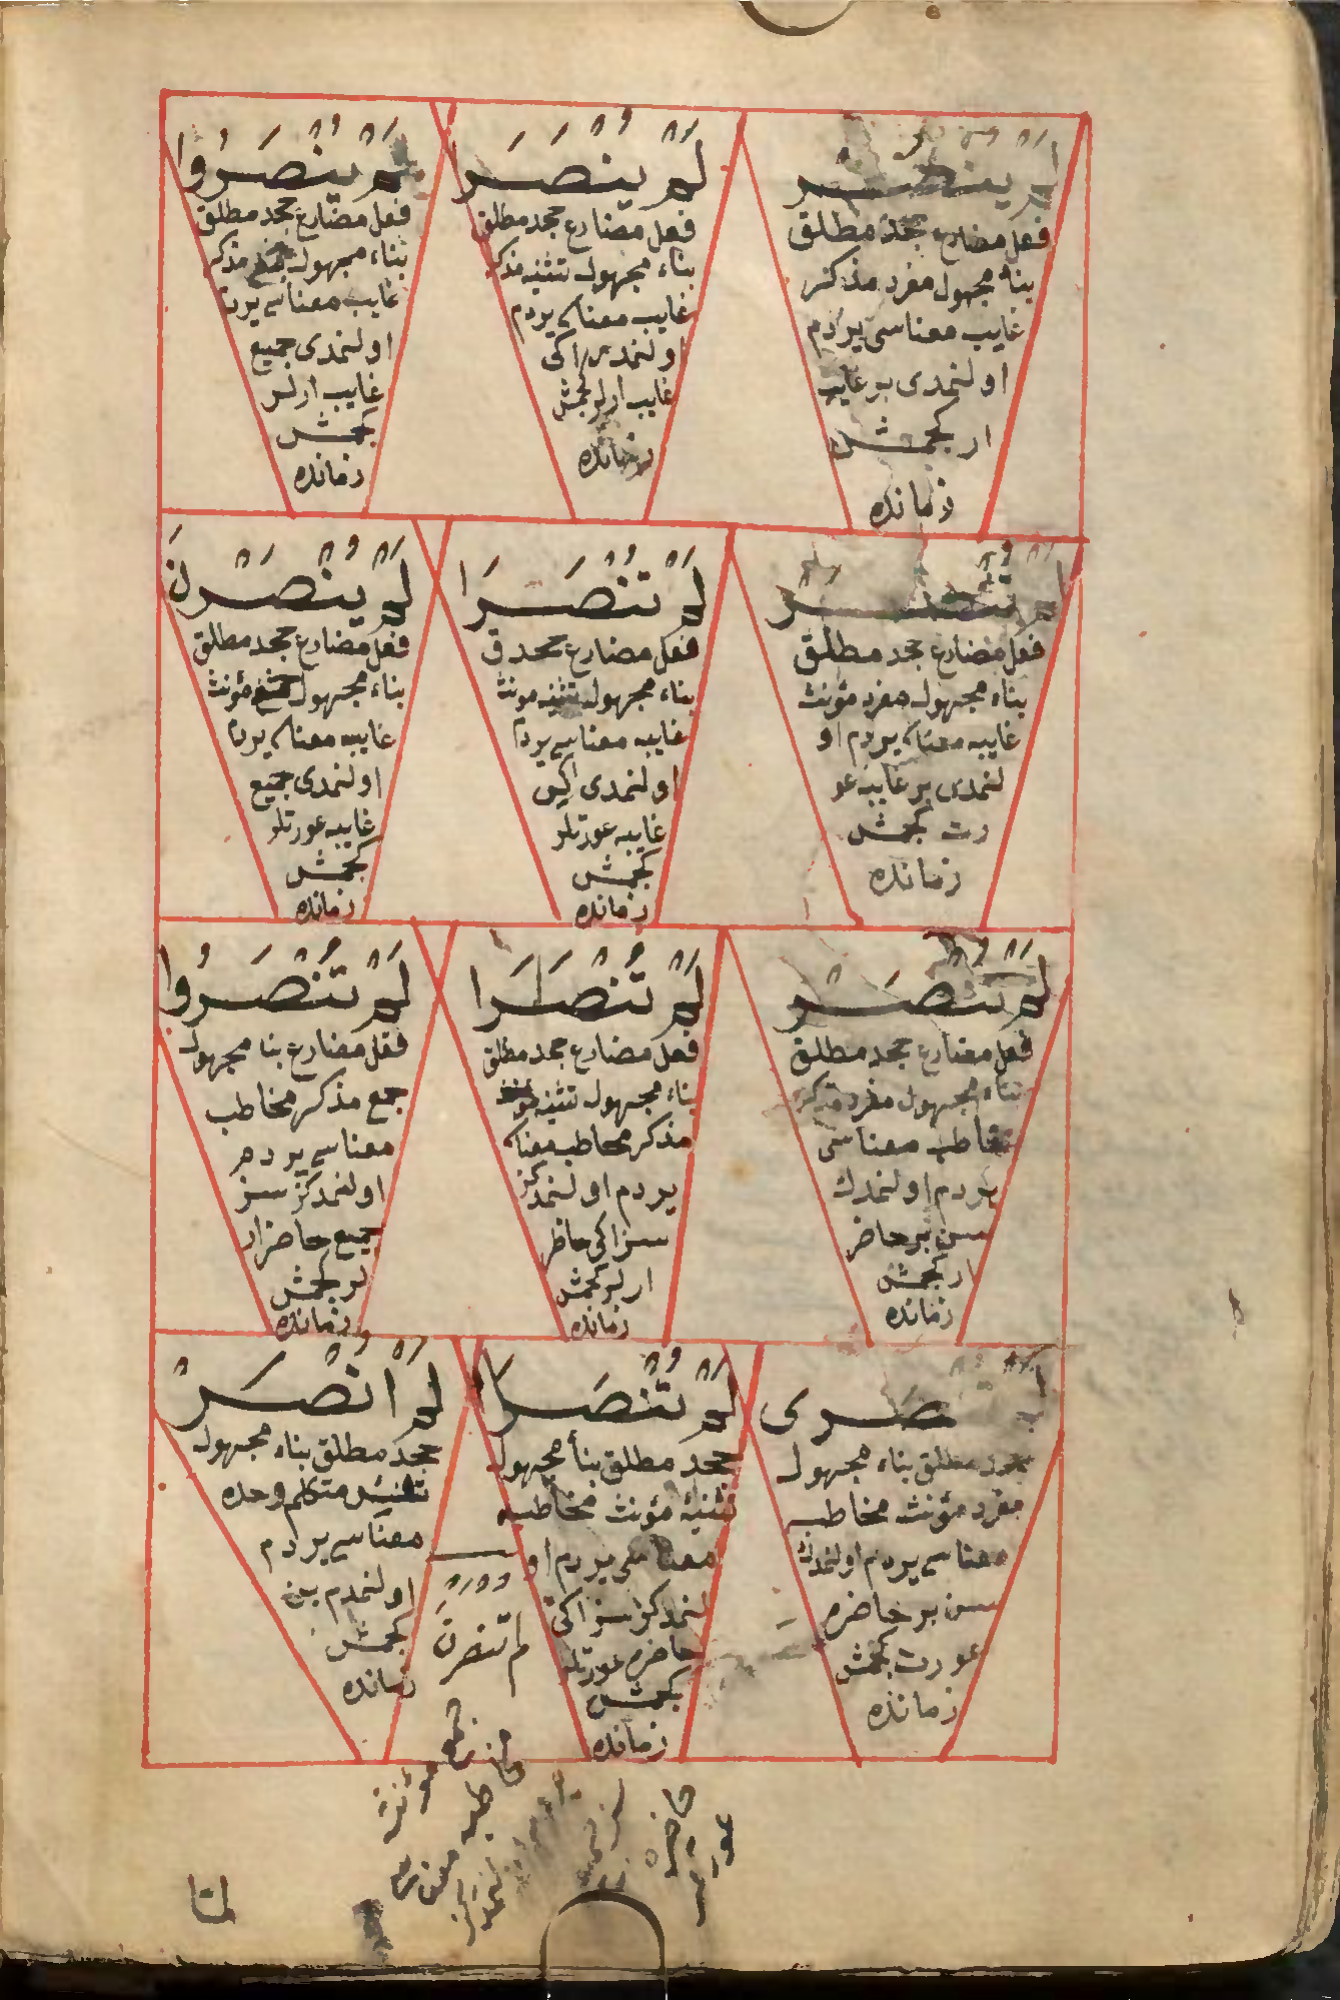 لَمْ يُنْصَرْ
فعل مضارع جحد مطلق
بناء مجهول مفرد مذكر
غايب معناسى يردم
اولنمدى بر غايب
ار كجمش
زمانده
لَمْ يُنْصَرَا
فعل مضارع جحد مطلق
بناء مجهول تثنيه مذكر
غايب معناسى يردم
اولنمدى ايكى
غايب ارلر كجمش
زمانده
لَمْ يُنْصَرُوا
فعل مضارع جحد مطلق
بناء مجهول جمع مذكر
غايب معناسى يردم
اولنمدى جميع
غايب ارلر
كجمش
زمانده
لَمْ تُنْصَرْ
فعل مضارع جحد مطلق
بناء مجهول مفرد مؤنث
غايبه معناسى يردم او
لنمدى بر غايبه عو
رت كجمش
زمانده
لَمْ تُنْصَرَا
فعل مضارع جحد ق
بناء مجهول تثنيه مونث
غايبه معناسى يردم
اولنمدى ايكى
غايبه عورتلر
كجمش
زمانده
لَمْ يُنْصَرْنَ
فعل مضارع جحد مطلق
بناء مجهول جمع مؤنث
غايبه معناسى يردم
اولنمدى جميع
غايبه عورتلر
كجمش
زمانده
لَمْ تُنْصَرْ
فعل مضارع جحد مطلق
بناء مجهول مفرد مذكر
مخاطب معناسى
يردم اولنمدك
سن بر حاضر
ار كجمش
زمانده
لَمْ تُنْصَرَا
فعل مضارع جحد مطلق
بناء مجهول تثنيه
مذكر مخاطب معناسى
يردم اولنمدكز
سز اكى حاظر
ارلر كجمش
زمانده
لَمْ تُنْصَرُوا
فعل مضارع بنا مجهول
جمع مذكر مخاطب
معناسى يردم
اولنمدكز سز
جميع حاضر ار
لر كجمش
زمانده
صرى
جحد مطلق بناء مجهول
مفرد مؤنث مخاطبه
معناسى يردم اولنمدك
سن بر حاضره
عورت كجمش
زمانده
لَمْ تُنْصَرَا
جحد مطلق بنأ مجهول
تثنيۀ مؤنث مخاطبه
معناسى يردم او
لنمدكز سز اكى
حاضره عورتلر
كجمش
زمانده
لم تنصرن
جمع مؤنث
مخاطبه معناسى
حاضره
عورت
لَمْ اُنْصَرْ
جحد مطلق بناء مجهول
متكلم وحده
معناسى يردم
اولنمدم بن
كجمش
زمانده
لمّا